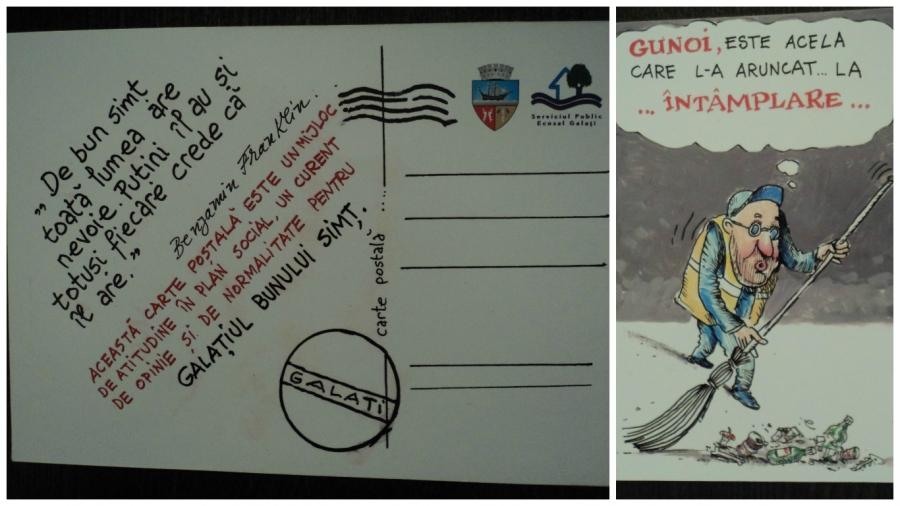 „De bun simt
toată lumea are
nevoie. Putini îl au și
totuși fiecare crede că
îl are.”
Benjamin Franklin.
ACEASTĂ CARTE POSTALĂ ESTE UN MIJLOC
DE ATITUDINE ÎN PLAN SOCIAL, UN CURENT
DE OPINIE ȘI DE NORMALITATE PENTRU
GALAȚIUL BUNULUI SIMȚ.
GALATI
carte postală
Serviciul Public
Ecosal Galați
GUNOI, ESTE ACELA
CARE L-A ARUNCAT... LA
... ÎNTÂMPLARE ...